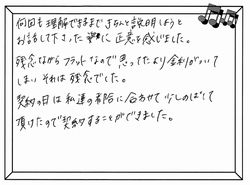 何回も理解できるまできちんと説明しようと
お話して下さった事に正意を感じました。
残念ながらフラットなので思ってたより金利がついて
しまい それは残念でした。
契約の日は私達の希合に合わせて 少しのばして
頂けたので契約することができました。